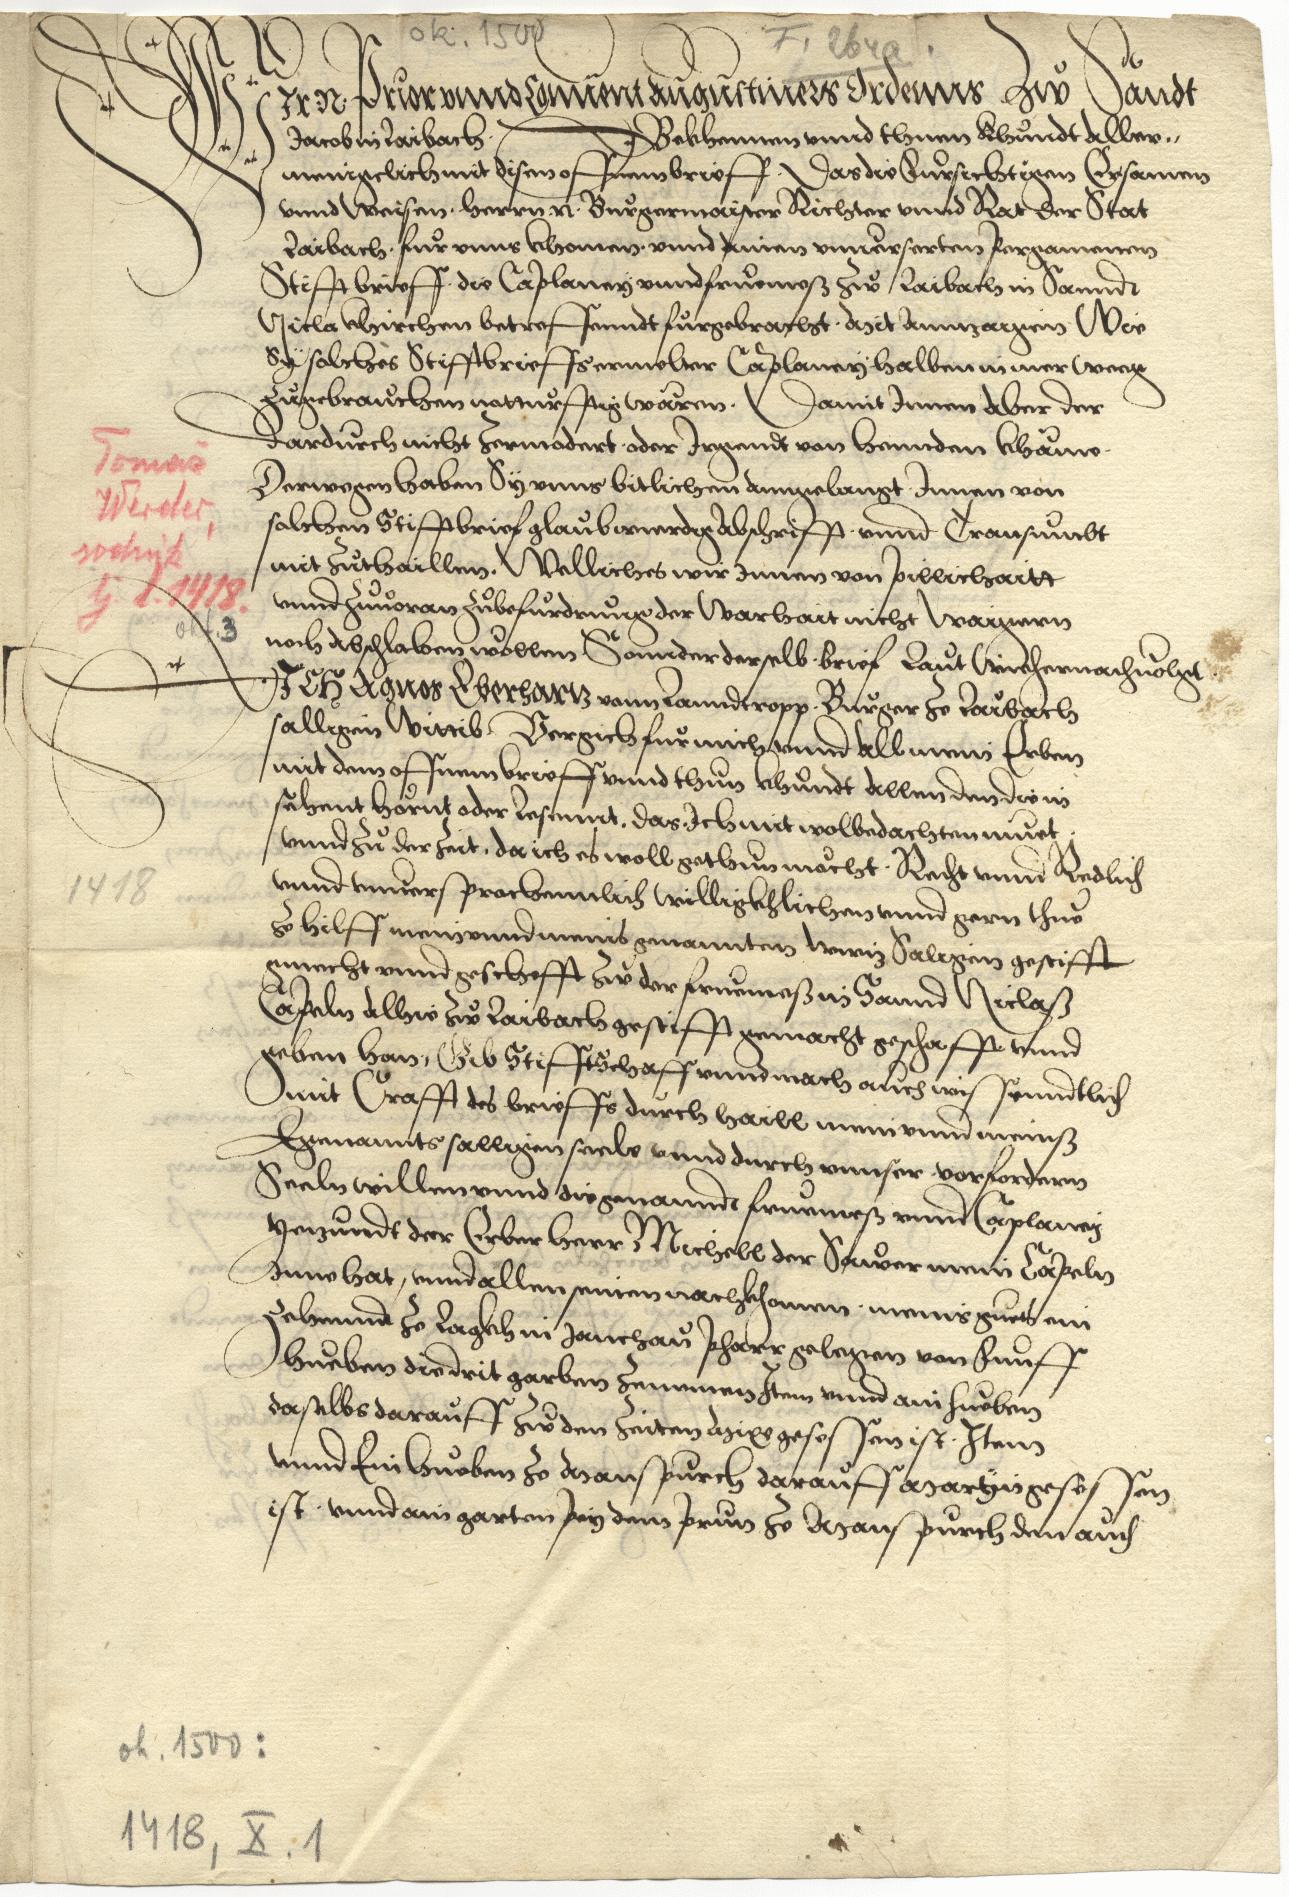 ok. 1500
F, 264a.
Wir N. Prior unnd Convent Augustiners Ordenns Zw Sandt
Jacob in Laibach. Bekhennen unnd thuen khundt aller-
menigelich mit disem offnem brieff. Das die Fursichtigen Ersamen
unnd Weisen. herrn N. Burgermaister Richter unnd Rat der Stat
Laibach. fur unns khomen. unnd ainen unverserten pergamenen
Stifftbrieff. die Caplaney unnd fruemeß zw Laibach in Sannd
Nicla khirchen betreffenndt furgebracht. mit annzaigen Wie
Sy solches Stifftbrieffs ermelter Caplaney halben in mer weeg
Zugebrauchen notturfftig wären. Damit Innen aber der
dardurch nicht zermodert. oder Irgendt von hennden khäme.
Derwegen haben Sy unns bitlichen anngelangt. Innen von
solchem Stifftbrief glaubwierdig Abschrifft. unnd Transsumbt
mit zuthaillen. Welliches wir Innen von pillichaitt
unnd zuvoran zubefurdrung der Warhait nicht Waigern
noch abschlahen wöllen Sonnder derselb. brief Laut Wie hernachvolgt.
ICH Agnes Eberhartz vonn Lanndtropp. Burger ze Laibach
salligen Wittib. Vergich fur mich unnd all mein Erben
mit dem offnem brieff unnd thun khundt allen den die in
sehent hörnt oder Lesennt. das Ich mit wolbedachtem muet.
unnd zu der Zeit. da ich es woll gethun mocht. Recht unnd Redlich
unnd unversprochennlich williglichen unnd gern thue
ze hilff mein unnd meins genannten wirtz Saligen gestifft
gmacht unnd geschefft zw der fruemeß in Sannd Niclaß
Capeln alhie zw Laibach gestifft gemacht geschafft unnd
geben han. Gib Stifft Schaff unnd mach auch wissenndtlich
mit Crafft des brieffs durch haill mein unnd meinß
Egenannts salligen seele unnd durch unnser vorfordern
Seeln willen unnd die genanndt fruemeß unnd Caplaney
yetzundt der Erber herr Michell der Sawer mein Capeln
Inne hat, unnd allen seinen nachkhomen. meins guets ein
Zehennd ze Lagkh in Jauchau pharr gelegen von Funff
hueben die drit garben Zenemen Item unnd ain hueben
daselbs darauff zw den Zeiten Mixe gesessen ist. Item
unnd Ein hueben ze Manspurch darauff Martin gesessen
ist. unnd ain garten pey dem prun ze Manspurch den auch
Tomaš
Werder,
sodnik
lj. l. 1418.
ok. 3
1418
ok. 1500:
1418, X. 1